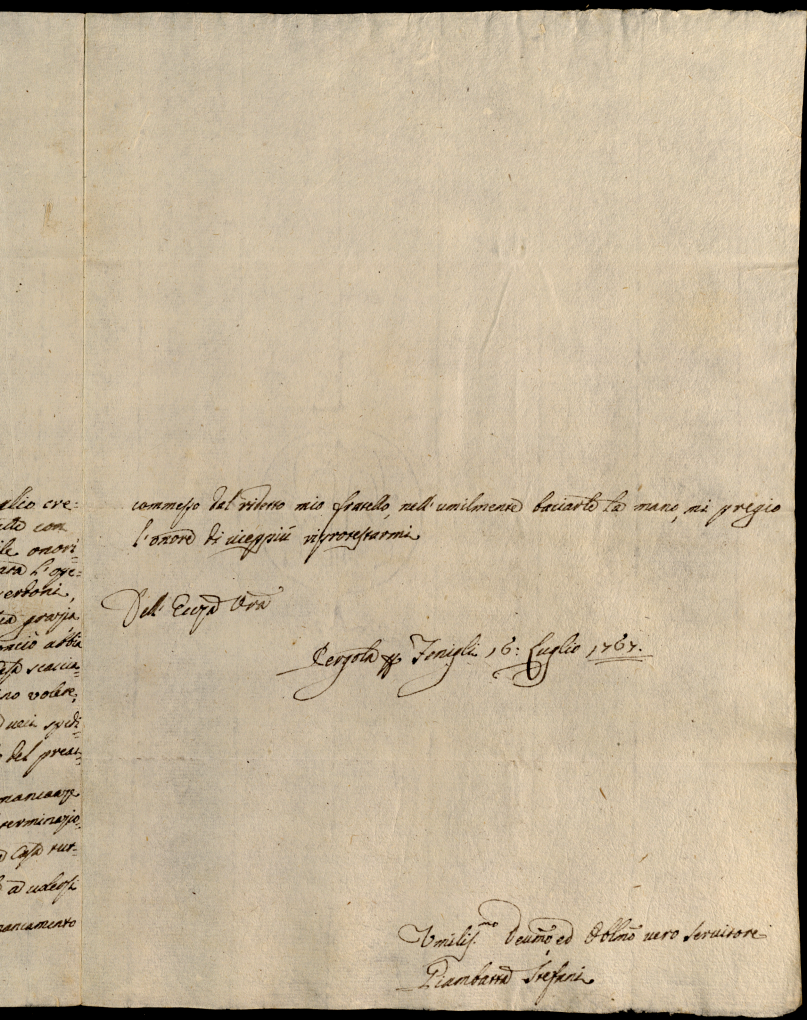 glio cre=
con
ile onori=
l'ope=
verdoni,
grazia
abbia
scaccia=
no volere,
spedi=
del preac=
mancanze
terminazio=
Casa tut=
ad
mancamento
commesso dal ridetto mio fratello, nell'umilmente baciarle la mano, mi pregio
l'onore di vieppiù riprotestarmi
Dell' Eccza Vra
Pergola Fenigli 16: Luglio 1767.
Umilis.mo Devmo ed Obblmo vero servitore
Giambatta Stefani